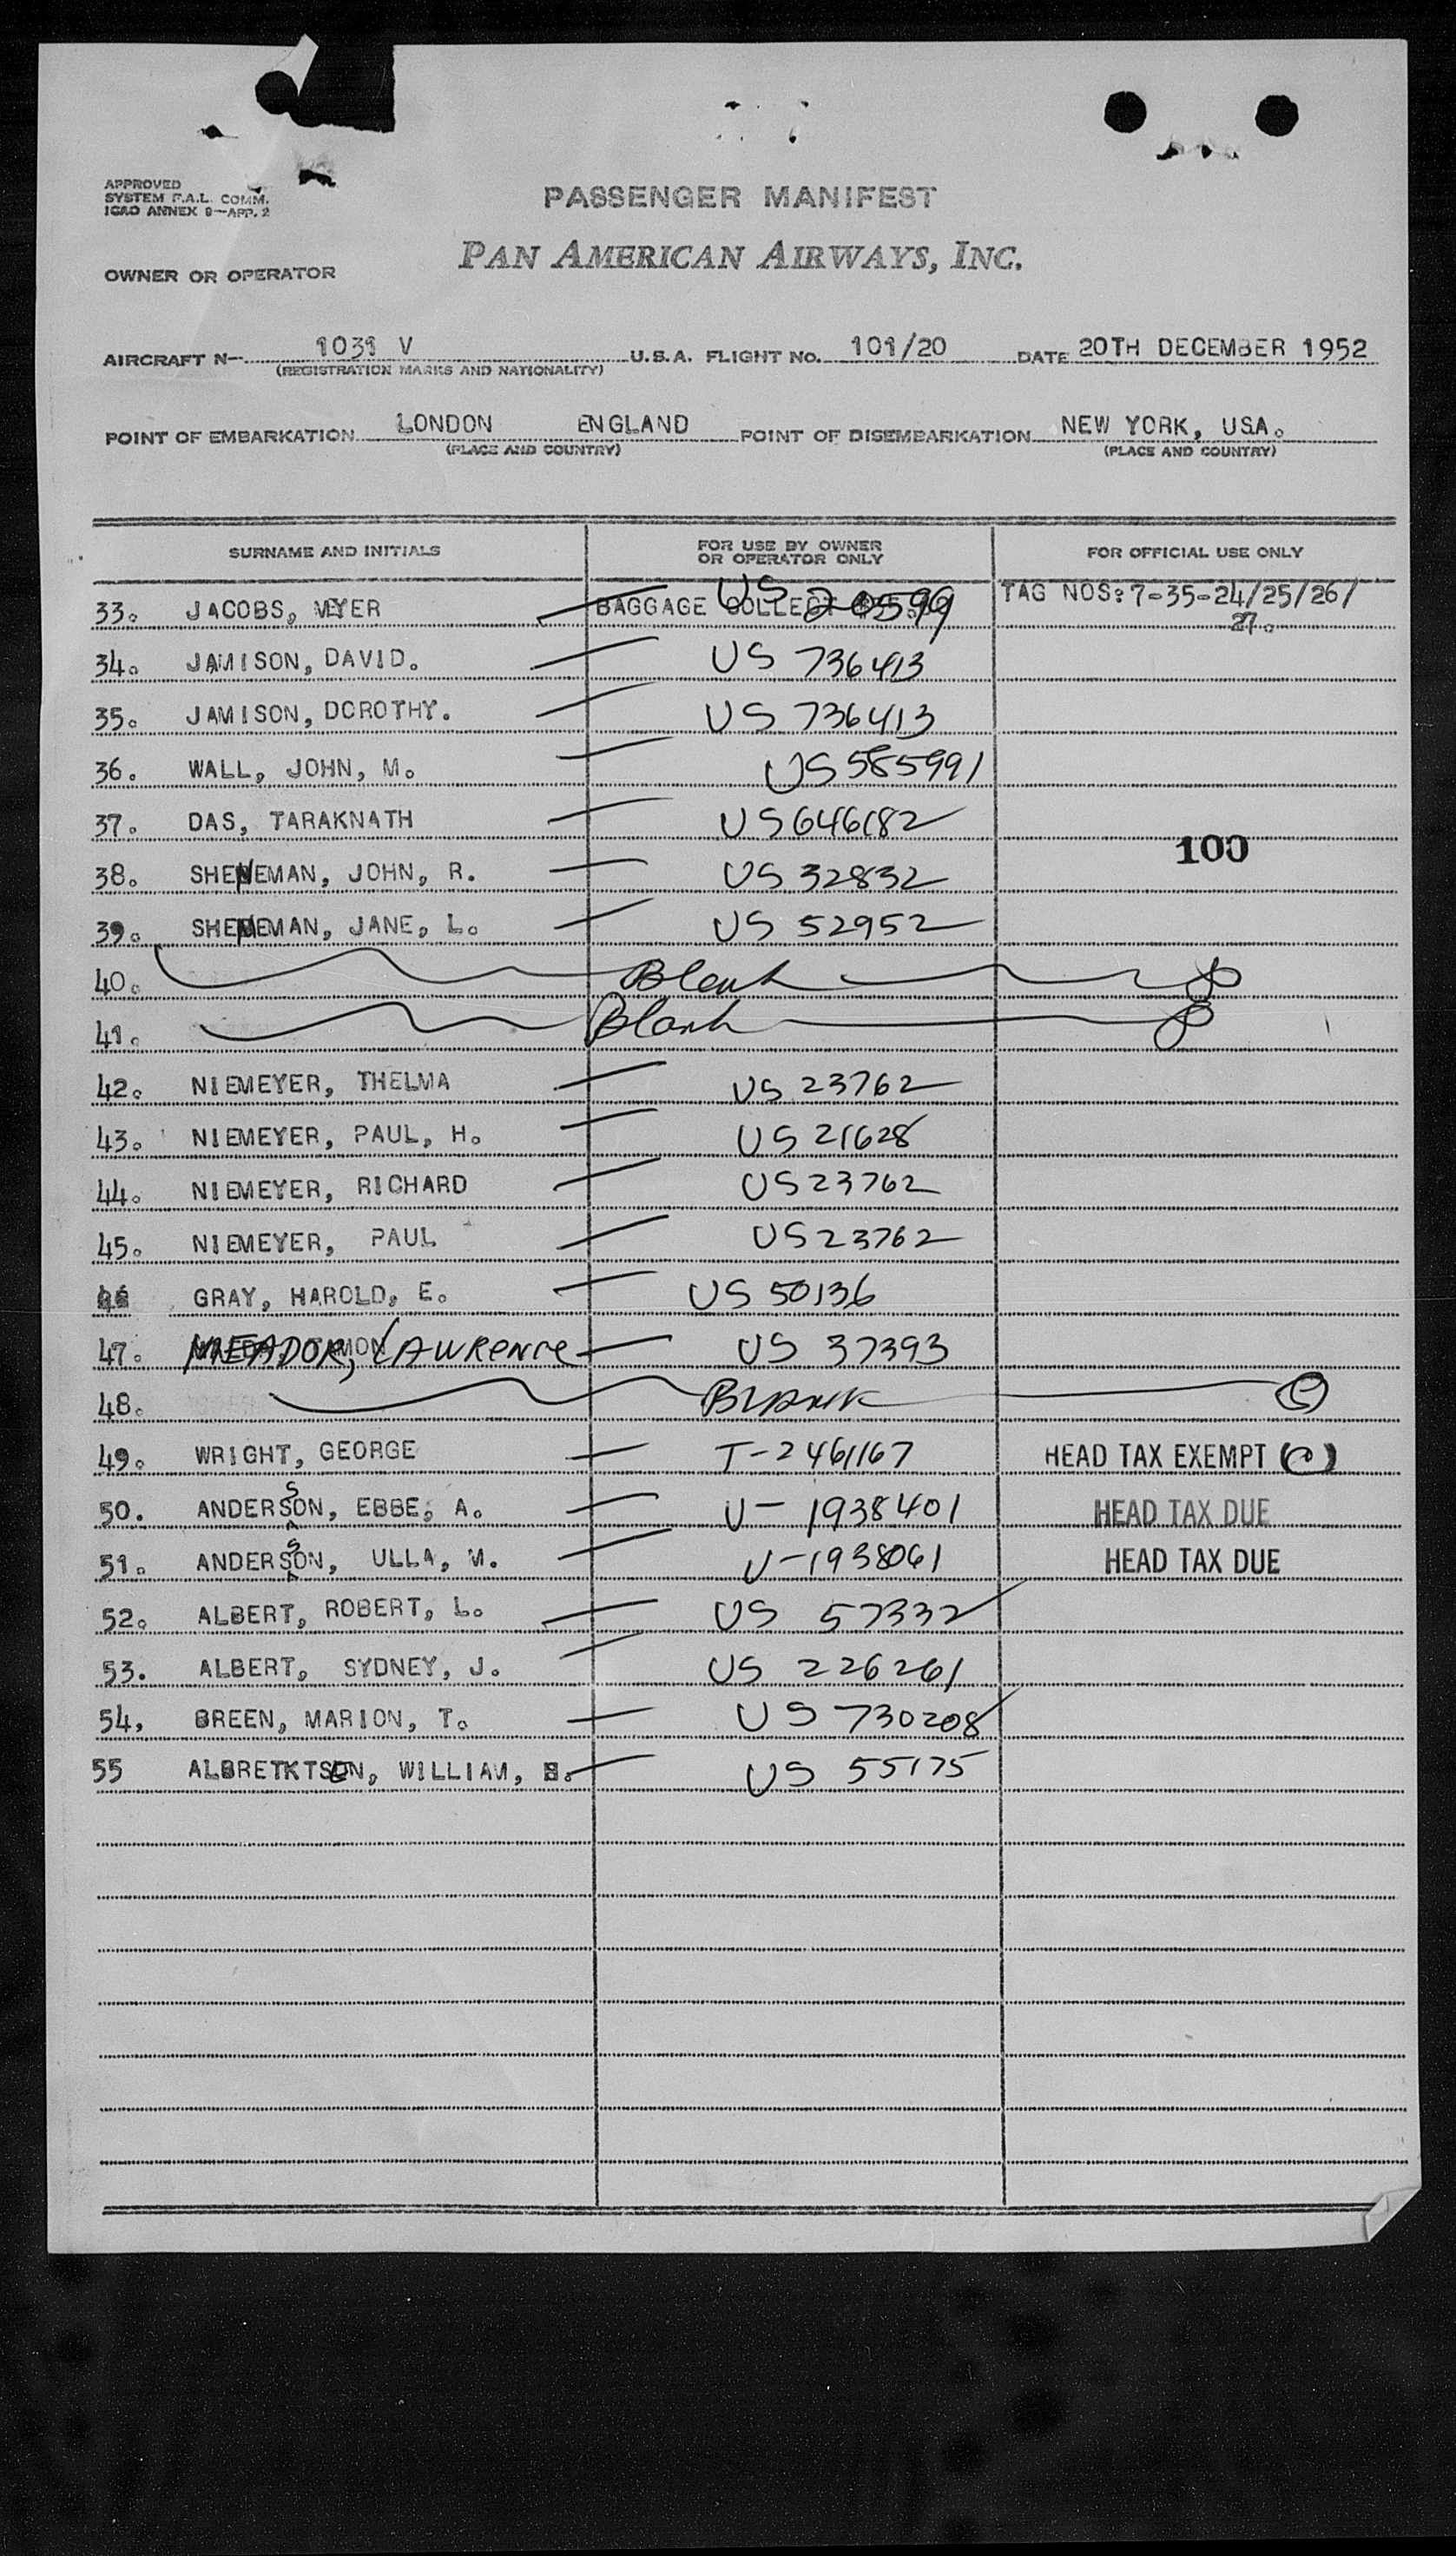 APPROVED
SYSTEM F.A.L. COMM.
ICAO ANNEX 9—APP. 2
PASSENGER MANIFEST
PAN AMERICAN AIRWAYS, INC.
OWNER OR OPERATOR
AIRCRAFT N— 1031 V U.S.A. FLIGHT NO. 101/20 DATE 20TH DECEMBER 1952
(REGISTRATION MARKS AND NATIONALITY)
POINT OF EMBARKATION LONDON ENGLAND POINT OF DISEMBARKATION NEW YORK, USA.
(PLACE AND COUNTRY) (PLACE AND COUNTRY)
SURNAME AND INITIALS FOR USE BY OWNER OR OPERATOR ONLY FOR OFFICIAL USE ONLY
33. JACOBS, MEYER BAGGAGE COLLECT US 20599 TAG NOS: 7-35-24/25/26/
27.
34. JAMISON, DAVID. US 736413
35. JAMISON, DOROTHY. US 736413
36. WALL, JOHN, M. US 585991
37. DAS, TARAKNATH US 646182
100
38. SHENEMAN, JOHN, R. US 32832
39. SHENEMAN, JANE, L. US 52952
40. Blank
41. Blank
42. NIEMEYER, THELMA US 23762
43. NIEMEYER, PAUL, H. US 21628
44. NIEMEYER, RICHARD US 23762
45. NIEMEYER, PAUL US 23762
46 GRAY, HAROLD, E. US 50136
47. MEADOR, LAWRENCE US 37393
48. BLANK
49. WRIGHT, GEORGE T-2461167 HEAD TAX EXEMPT
50. ANDERSSON, EBBE, A. V- 1938401 HEAD TAX DUE
51. ANDERSSON, ULLA, M. V-1938061 HEAD TAX DUE
52. ALBERT, ROBERT, L. US 57332
53. ALBERT, SYDNEY, J. US 226261
54, BREEN, MARION, T. US 730208
55 ALBRETKTSEN, WILLIAM, US 55175